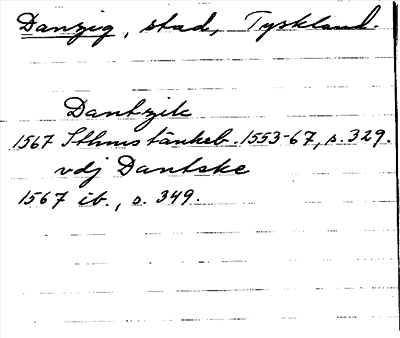 Danzig, stad, Tyskland.
Dantzik
1567 Sthms tänkeb. 1553-67, s. 329.
vdj Dantske
1567 ib., s. 349.